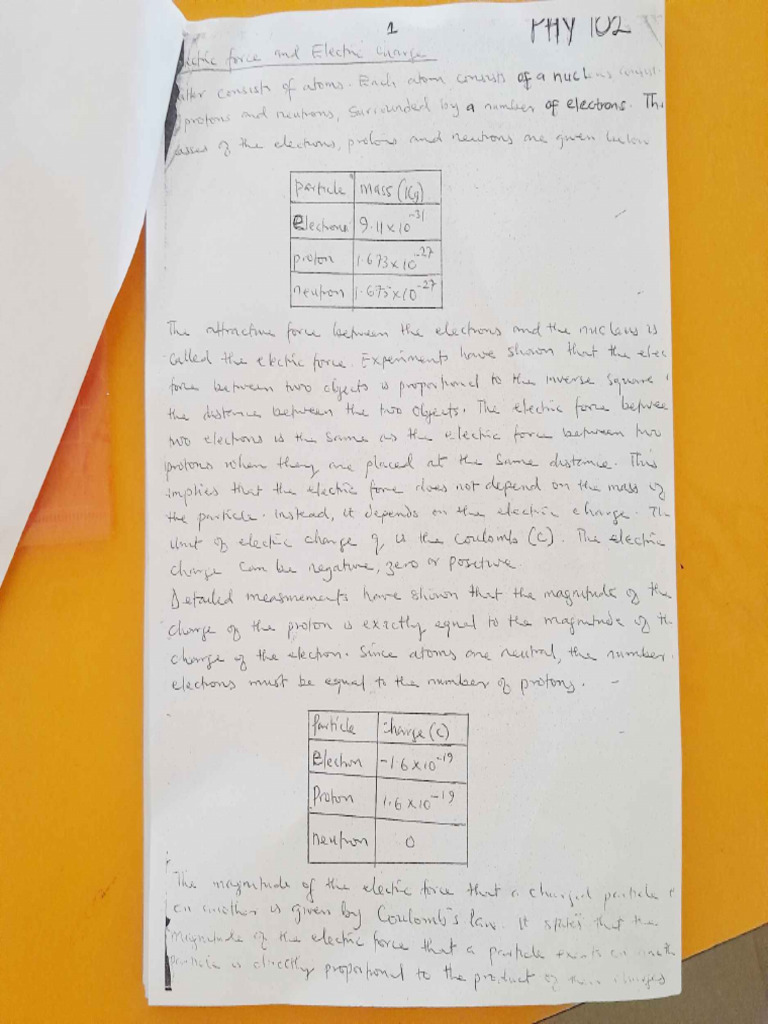 1
PHY 102
ectric force and Electric charge
atter consists of atoms. Each atom consists of a nucleus consist
protons and neutrons, surrounded by a number of electrons. The
asses of the electrons, protons and neutrons are given below
particle mass (Kg)
Electrons 9.11 x 10⁻³¹
proton 1.673 x 10⁻²⁷
neutron 1.675 x 10⁻²⁷
The attractive force between the electrons and the nucleus is
called the electric force. Experiments have shown that the elec
force between two objects is proportional to the inverse square
the distance between the two objects. The electric force betwee
two electrons is the same as the electric force between two
protons when they are placed at the same distance. This
implies that the electric force does not depend on the mass of
the particle. Instead, it depends on the electric charge. The
Unit of electric charge q is the Coulomb (C). The electric
charge can be negative, zero or positive.
Detailed measurements have shown that the magnitude of the
charge of the proton is exactly equal to the magnitude of th
charge of the electron. Since atoms are neutral, the number
electrons must be equal to the number of protons.
Particle Charge (C)
Electron -1.6 x 10⁻¹⁹
Proton 1.6 x 10⁻¹⁹
neutron 0
The magnitude of the electric force that a charged particle e
on another is given by Coulomb's law. It states that the
magnitude of the electric force that a particle exerts on anoth
particle is directly proportional to the product of their charges